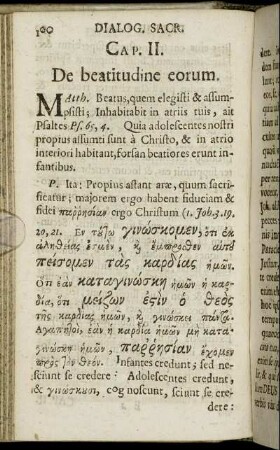 100 DIALOG. SACR.
CAP. II.
De beatitudine eorum.
MAtth. Beatus, quem elegisti & assum-
psisti; Inhabitabit in atriis tuis, ait
Psaltes Ps. 65, 4. Quia adolescentes nostri
propius assumti sunt à Christo, & in atrio
interiori habitant, forsan beatiores erunt in-
fantibus.
P. Ita: Propius astant aræ, quum sacri-
ficatur; majorem ergo habent fiduciam &
fidei παρρησίαν ergo Christum (1. Joh. 3. 19.
20, 21. Εν τȣ́τῳ γινώσκομεν, ὅτι ἐκ
ἀληθείας ἐσμὲν, κ̀ ἔμπροσθεν αὐτȣ͂
πείσομεν τὰς καρδίας ἡμῶν.
Ὅτι ἐὰν καταγινώσκη ἡμῶν ἡ καρ-
δία, ὅτι μείζων ἐστὶν ὁ Θεὸς
τῆς καρδίας ἡμῶν, κ̀ γινώσκει πάντα.
Αγαπητοὶ, ἐὰν ἡ καρδία ἡμῶν μὴ κατα-
γινώσκη ἡμῶν, παρρησίαν ἔχομεν
πρὸς τὸν Θεόν. Infantes credunt; sed ne-
sciunt se credere: Adolescentes credunt,
& γινώσκουσι, cognoscunt, sciunt se cre-
dere: